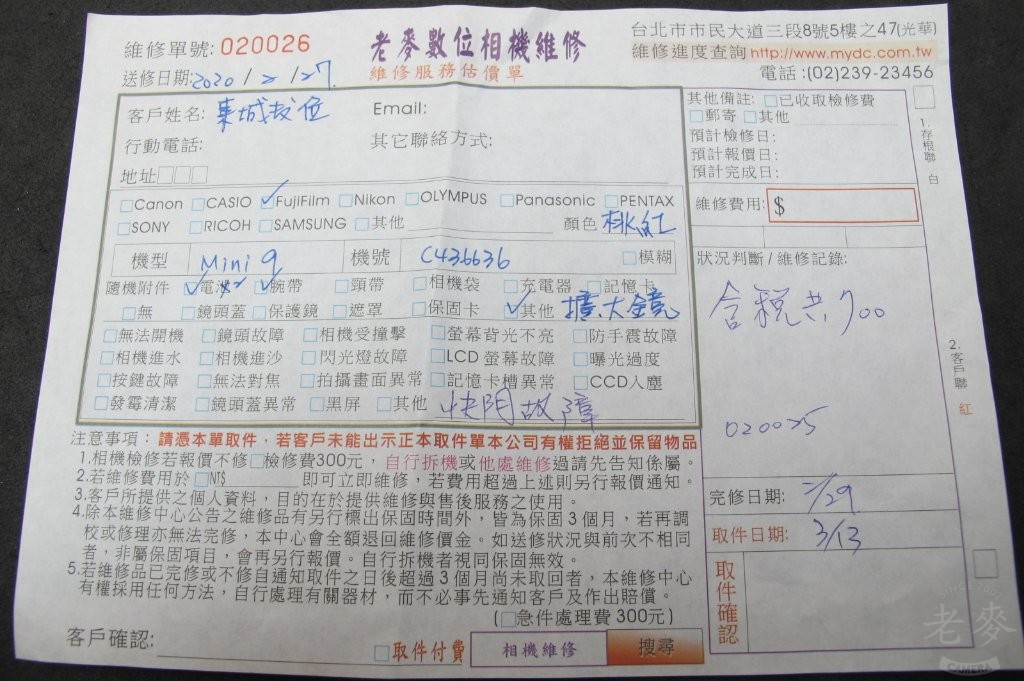 維修單號: 020026
老麥數位相機維修
維修服務估價單
台北市市民大道三段8號5樓之47(光華)
維修進度查詢 http://www.mydc.com.tw
電話:(02)239-23456
送修日期: 2020/2/27
客戶姓名: 東城数位 Email:
行動電話: 其它聯絡方式:
地址□□□
□Canon □CASIO ☑FujiFilm □Nikon □OLYMPUS □Panasonic □PENTAX
□SONY □RICOH □SAMSUNG □其他 顏色 桃紅
機型 Mini 9 機號 C436636 □模糊
隨機附件 ☑電池x2 ☑腕帶 □頸帶 □相機袋 □充電器 □記憶卡
□無 □鏡頭蓋 □保護鏡 □遮罩 □保固卡 ☑其他 擴大鏡
□無法開機 □鏡頭故障 □相機受撞擊 □螢幕背光不亮 □防手震故障
□相機進水 □相機進沙 □閃光燈故障 □LCD 螢幕故障 □曝光過度
□按鍵故障 □無法對焦 □拍攝畫面異常 □記憶卡槽異常 □CCD入塵
□發霉清潔 □鏡頭蓋異常 □黑屏 □其他 快門故障
注意事項：請憑本單取件，若客戶未能出示正本取件單本公司有權拒絕並保留物品
1.相機檢修若報價不修□檢修費300元，自行拆機或他處維修過請先告知係屬。
2.若維修費用於□NT$ 即可立即維修，若費用超過上述則另行報價通知。
3.客戶所提供之個人資料，目的在於提供維修與售後服務之使用。
4.除本維修中心公告之維修品有另行標出保固時間外，皆為保固3個月，若再調
校或修理亦無法完修，本中心會全額退回維修價金。如送修狀況與前次不相同
者，非屬保固項目，會再另行報價。自行拆機者視同保固無效。
5.若維修品已完修或不修自通知取件之日後超過3個月尚未取回者，本維修中心
有權採用任何方法，自行處理有關器材，而不必事先通知客戶及作出賠償。
(□急件處理費 300元)
客戶確認: □取件付費 相機維修 搜尋
其他備註: □已收取檢修費
□郵寄 □其他
預計檢修日:
預計報價日:
預計完成日:
維修費用: $
狀況判斷/維修記錄:
含稅共700
020025
完修日期: 2/29
取件日期: 3/13
取件確認
1.存根聯 白
2.客戶聯 紅
老麥
CAMERA